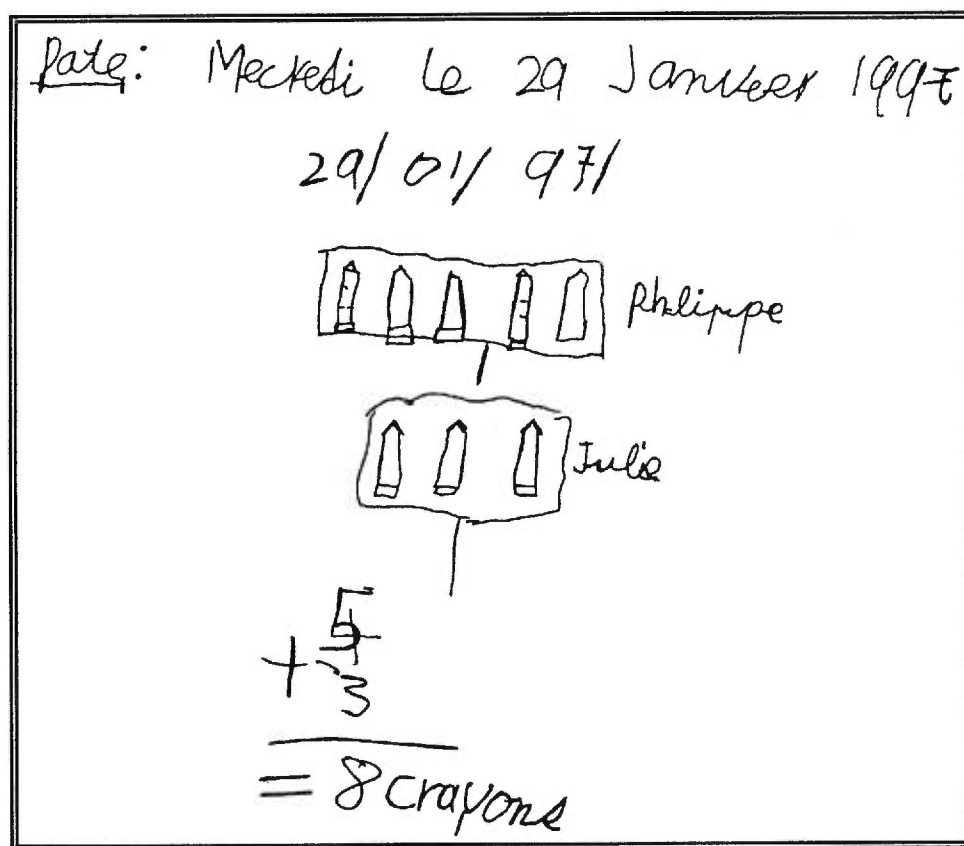 Date: Mecredi le 29 Janvier 1997
29/01/97/
Philippe
Julie
5
+ 3
= 8 crayons